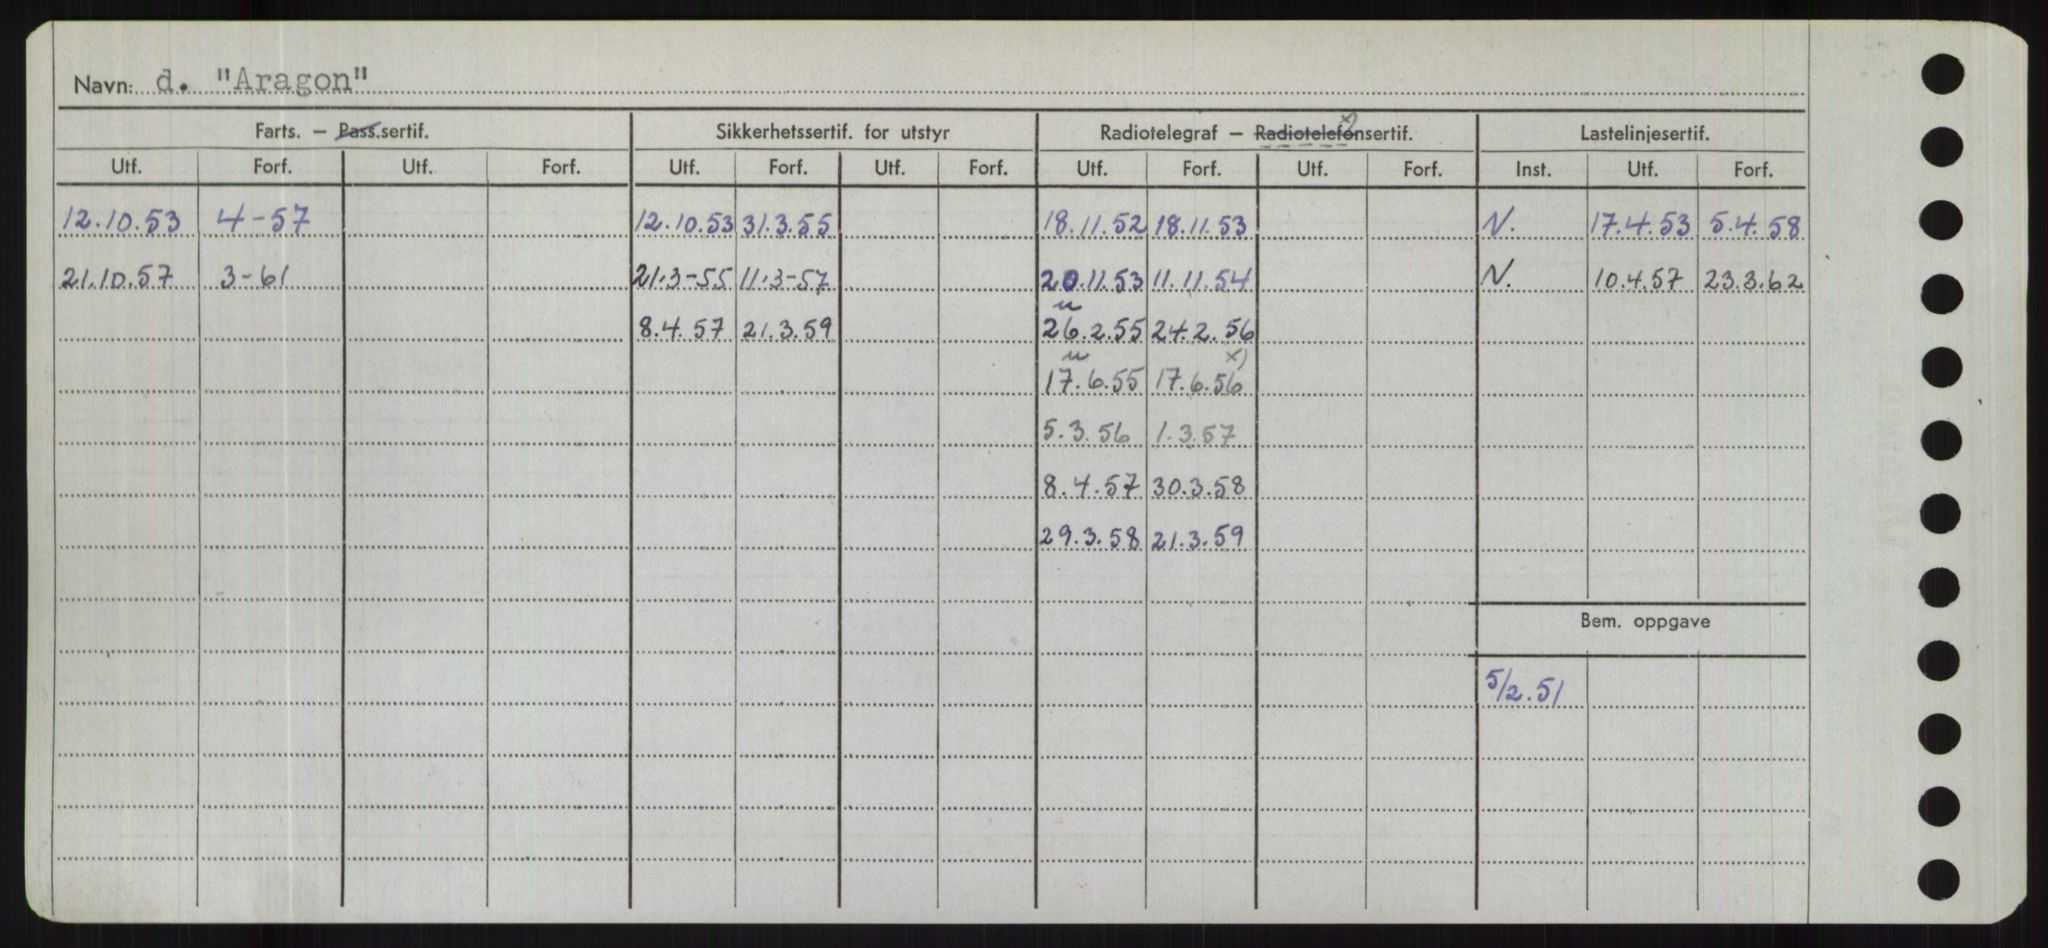 Navn: d. "Aragon"
Farts. – Pass.sertif. Sikkerhetssertif. for utstyr Radiotelegraf – Radiotelefonsertif. x) Lastelinjesertif.
Utf. Forf. Utf. Forf. Utf. Forf. Utf. Forf. Utf. Forf. Utf. Forf. Inst. Utf. Forf.
12.10.53 4-57 12.10.53 31.3.55 18.11.52 18.11.53 N. 17.4.53 5.4.58
21.10.57 3-61 21.3-55 11.3-57 20.11.53 11.11.54 N. 10.4.57 23.3.62
8.4.57 21.3.59 26.2.55 24.2.56
17.6.55 17.6.56 x)
5.3.56 1.3.57
8.4.57 30.3.58
29.3.58 21.3.59
Bem. oppgave
5/2.51